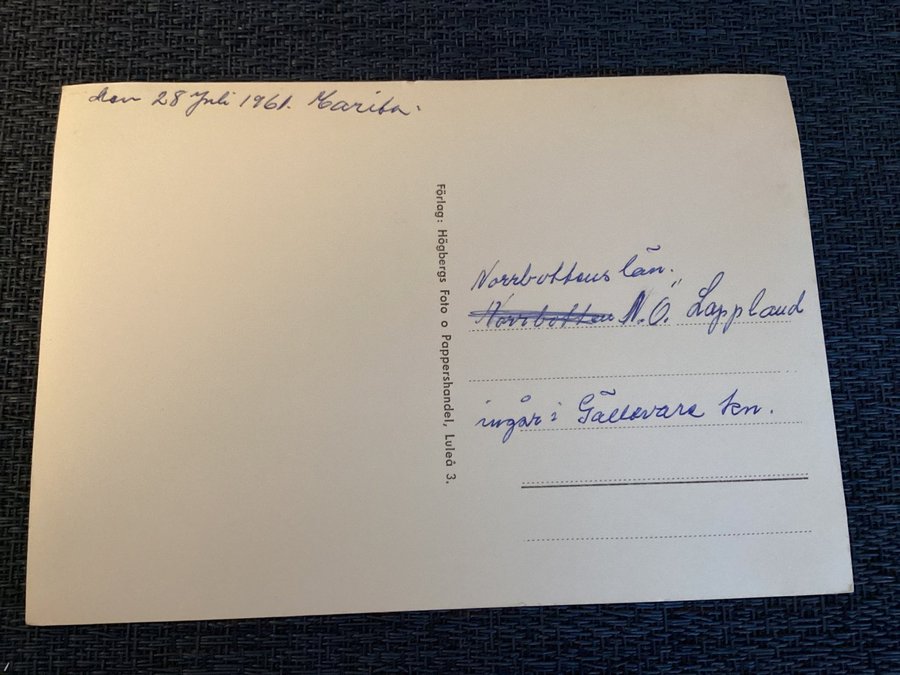 den 28 Juli 1961. Marita.
Förlag: Högbergs Foto o Pappershandel, Luleå 3.
Norrbottens län.
Norrbotten N.Ö. Lappland
ingår i Gällevare kn.